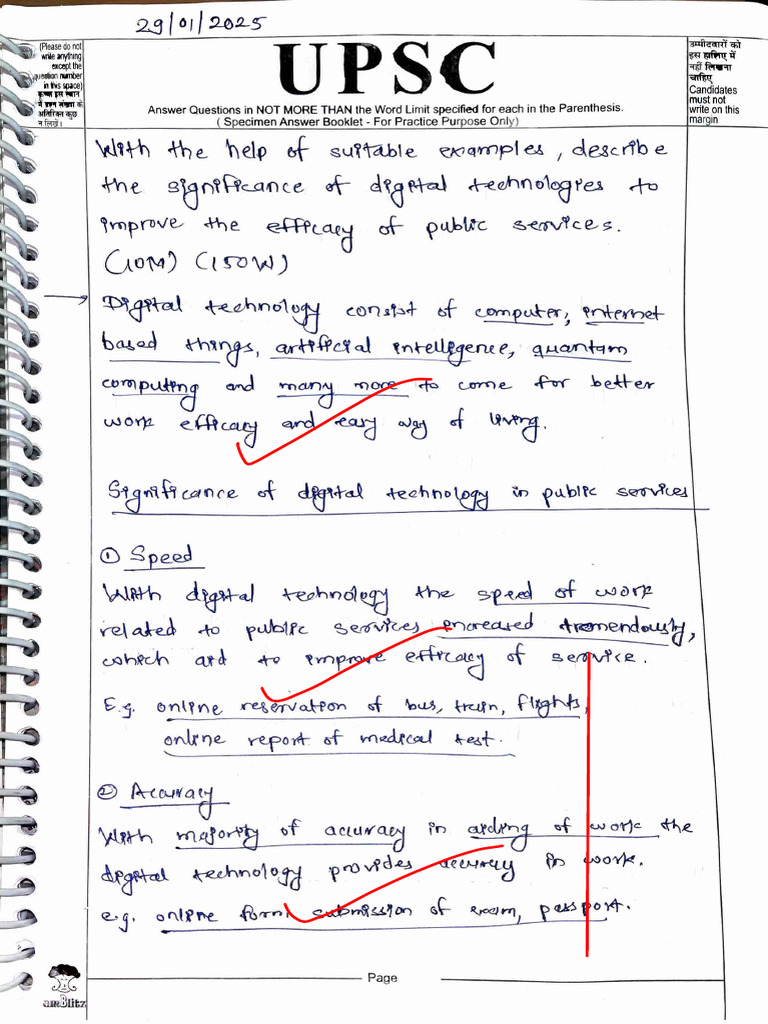 29/01/2025
(Please do not
write anything
except the
question number
in this space)
कृपया इस स्थान
में प्रश्न संख्या के
अतिरिक्त कुछ
न लिखें।
UPSC
Answer Questions in NOT MORE THAN the Word Limit specified for each in the Parenthesis.
( Specimen Answer Booklet - For Practice Purpose Only)
उम्मीदवारों को
इस हाशिए में
नहीं लिखना
चाहिए
Candidates
must not
write on this
margin
With the help of suitable examples, describe
the significance of digital technologies to
improve the efficacy of public services.
(10M) (150W)
Digital technology consist of computer, internet
based things, artificial intelligence, quantam
computing and many more to come for better
work efficacy and easy way of living.
Significance of digital technology in public services
① Speed
With digital technology the speed of work
related to public services increased tremendously,
which aid to improve efficacy of service.
E.g. online reservation of bus, train, flights,
online report of medical test.
② Accuracy
With majority of accuracy in aiding of work the
digital technology provides accuracy in work.
e.g. online form submission of exam, passport.
Page
amBlitz